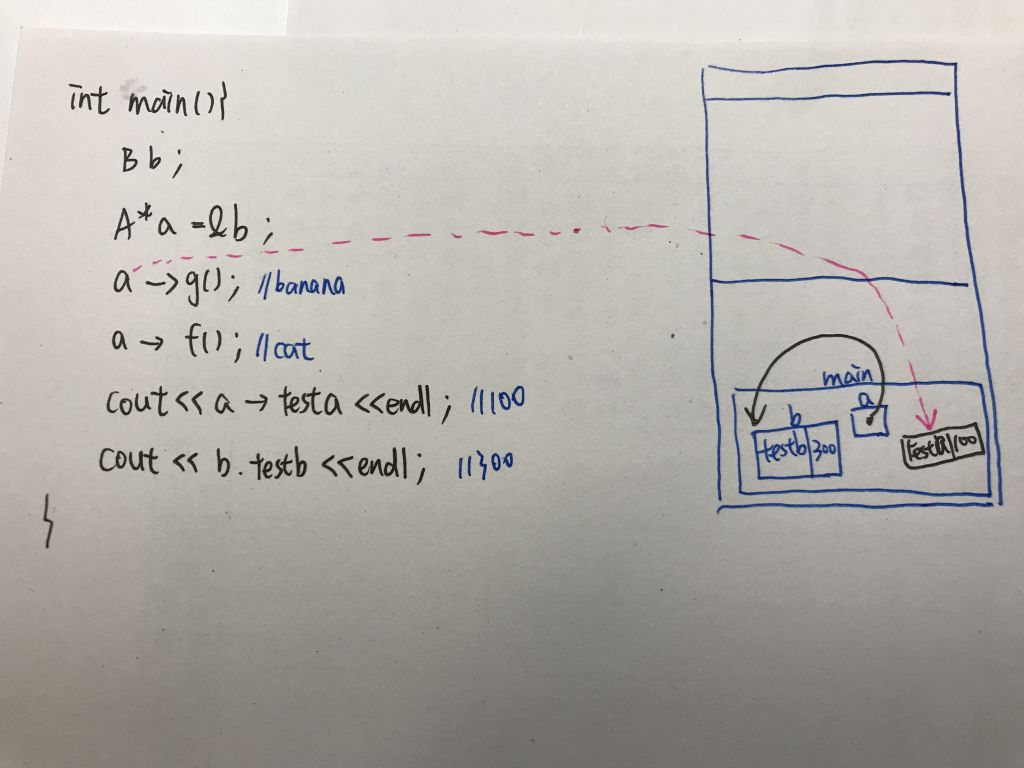 int main(){
B b;
A* a = &b;
a ->g(); //banana
a -> f(); //cat
cout << a -> testa <<endl; //100
cout << b.testb <<endl; //300
}
main
a
b
testb 300
testa 100